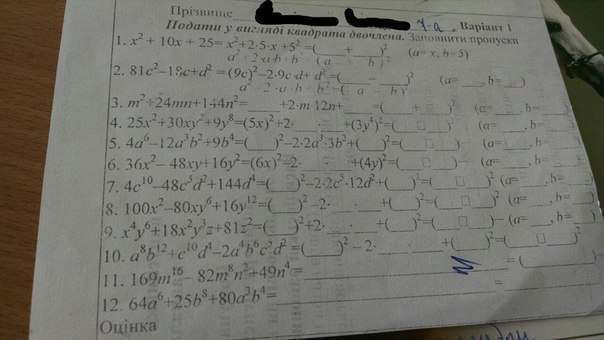 Прізвище 7а. Варіант 1
Подати у вигляді квадрата двочлена. Заповнити пропуски
1. x² + 10x + 25= x²+2·5·x +5² =(___+___)² (a= x, b=5)
a² + 2 ·a·b + b² = ( a + b )²
2. 81c²–18c+d² = (9c)²–2·9c·d+ d² =(___–___)² (a=__, b=__)
a² – 2 ·a · b + b² = ( a – b )²
3. m²+24mn+144n²=___+2·m·12n+___=(___+___)² (a=__, b=__)
4. 25x²+30xy⁴+9y⁸=(5x)²+2·___·___+(3y⁴)²=(___□___)² (a=__, b=__)
5. 4a⁶–12a³b²+9b⁴=(___)²–2·2a³·3b²+(___)²=(___□___)² (a=__, b=__)
6. 36x²–48xy+16y²=(6x)²–2·___·___+(4y)²=(___□___)² (a=__, b=__)
7. 4c¹⁰–48c⁵d²+144d⁴=(___)²–2·2c⁵·12d²+(___)²=(___□___)² (a=__, b=__)
8. 100x²–80xy⁶+16y¹²=(___)²–2·___·___+(___)²=(___□___)² (a=__, b=__)
9. x⁴y⁶+18x²y³z+81z²=(___)²+2·___·___+(___)²=(___□___)² (a=__, b=__)
10. a⁸b¹²+c¹⁰d⁴–2a⁴b⁶c⁵d²=(___)² – 2·___·___+(___)²=(___□___)²
11. 169m¹⁶– 82m⁸n²+49n⁴=___=(___)
12. 64a⁶+25b⁸+80a³b⁴=___
Оцінка